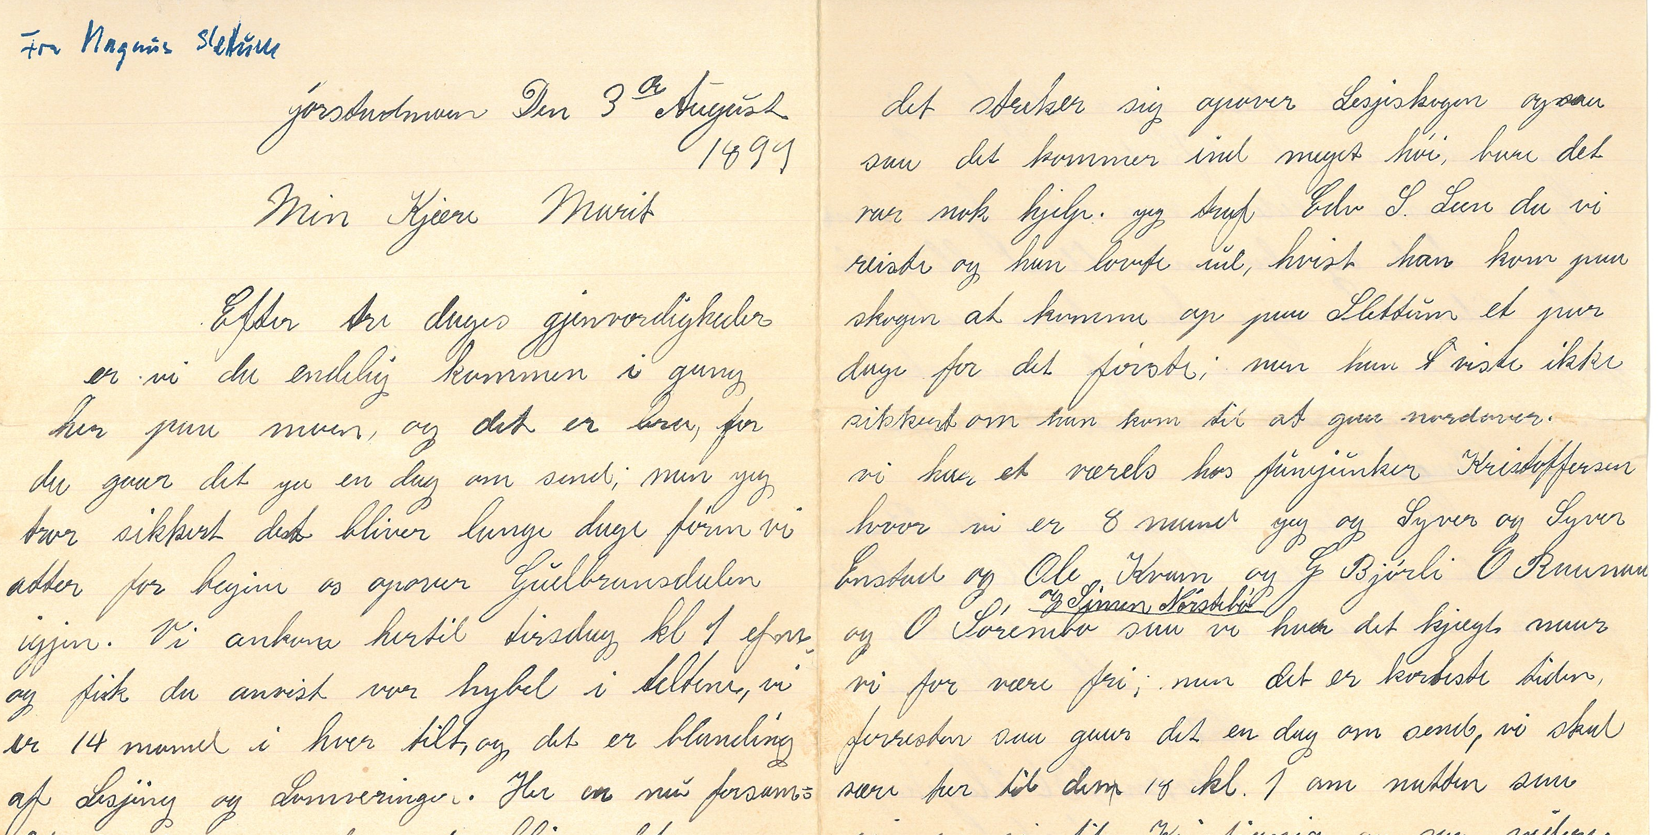 Fra Magnus Sletum
Jörstadmoen Den 3de August
1899
Min Kjære Marit
Efter tre dages gjenvordigheder
er vi da endelig kommen i gang
her paa moen, og det er bra, for
da gaar det ya en dag om send; men yeg
tror sikkert det bliver lange dage förin vi
atter for begive os opover Gudbrandsdalen
igjen. Vi ankom hertil tirsdag kl 1 efm.
og fik da anvist vor hybel i teltene, vi
er 14 mand i hver telt, og det er blanding
af Lesjing og Lomveringer. Her er nu forsam=
det streker sig opover Lesjeskogen og
saa det kommer ind meget höi, bare det
var nok hjelp. yeg traf Edv S. Lien da vi
reiste og han lovte
hvist han kom paa
skogen at komme op paa Slettum et par
dage for det förste; men han viste ikke
sikkert om han kom til at gaa nordover.
vi har et værels hos furrjunker Kristoffersen
hvor vi er 8 mand yeg og Syver og Syver
Enstad og Ole Kvam og G Björli O Raanaa
og Simen Norsteboe
og O Sörembo saa vi har det kjægt naar
vi for være fri; men det er korteste tiden,
forresten saa gaar det en dag om send, vi skal
være her til den 18 kl. 1 om natten saa